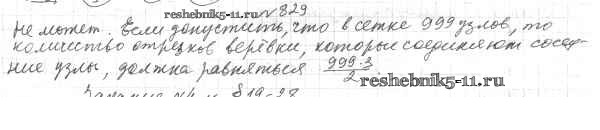 reshebnik5-11.ru № 829
не может. Если допустить, что в сетке 999 узлов, то
количество отрезков верёвки, которые соединяют сосед-
ние узлы, должна равняться 999·3
2
reshebnik5-11.ru